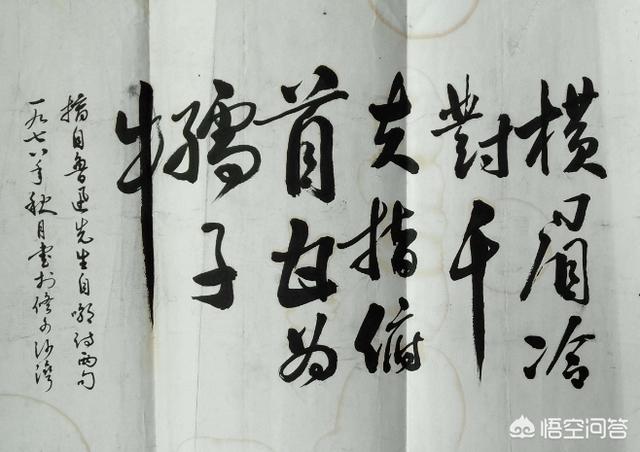 橫眉冷
對千
夫指俯
首甘为
孺子
牛
摘自魯迅先生自嘲诗两句
一九七八年秋月书于修水沙湾
悟空问答